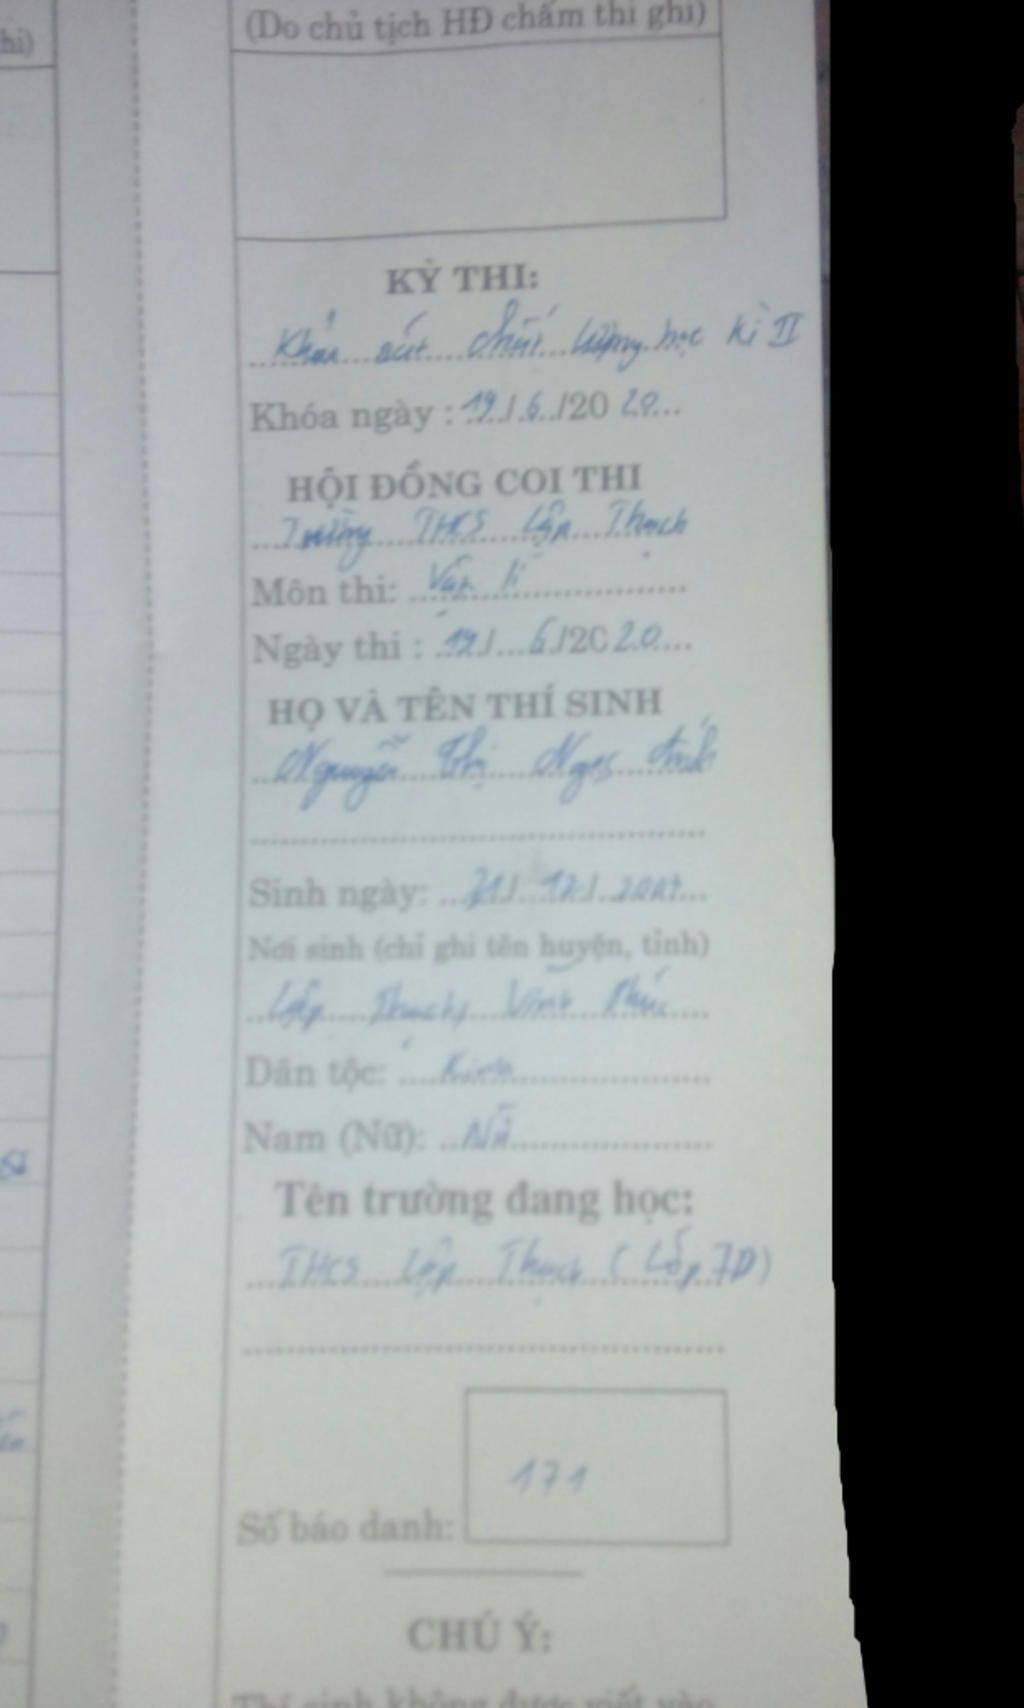 hi)
(Do chủ tịch HĐ chấm thi ghi)
KỲ THI:
Khảo sát chất lượng học kì II
Khóa ngày : 19/.6./2020...
HỘI ĐỒNG COI THI
Trường THCS Lập Thạch
Môn thi: Vật lí
Ngày thi : 19/...6/2020....
HỌ VÀ TÊN THÍ SINH
Nguyễn Thị Ngọc Ánh
Sinh ngày: 12/ 2007
Nơi sinh (chỉ ghi tên huyện, tỉnh)
Lập Thạch, Vĩnh Phúc
Dân tộc: Kinh
Nam (Nữ): Nữ
Tên trường đang học:
THCS Lập Thạch (Lớp 7D)
Số báo danh: 171
CHÚ Ý:
Thí sinh không được viết vào